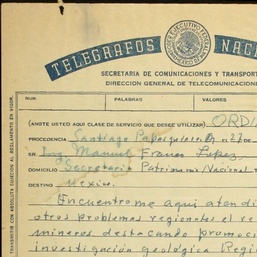 TELEGRAFOS NAC
SECRETARIA DE COMUNICACIONES Y TRANSPORT
DIRECCION GENERAL DE TELECOMUNICACIONE
NUM. PALABRAS VALORES
(ANOTE USTED AQUI CLASE DE SERVICIO QUE DESEE UTILIZAR) ORDI
PROCEDENCIA Santiago
SR Ing Manuel Franco Lopez,
DOMICILIO Secretario Patrimonio Nacional
DESTINO Mexico.
Encuentrome aqui atendi
otros problemas regionales el re
mineros destacando promoc
investigación geológica Regi